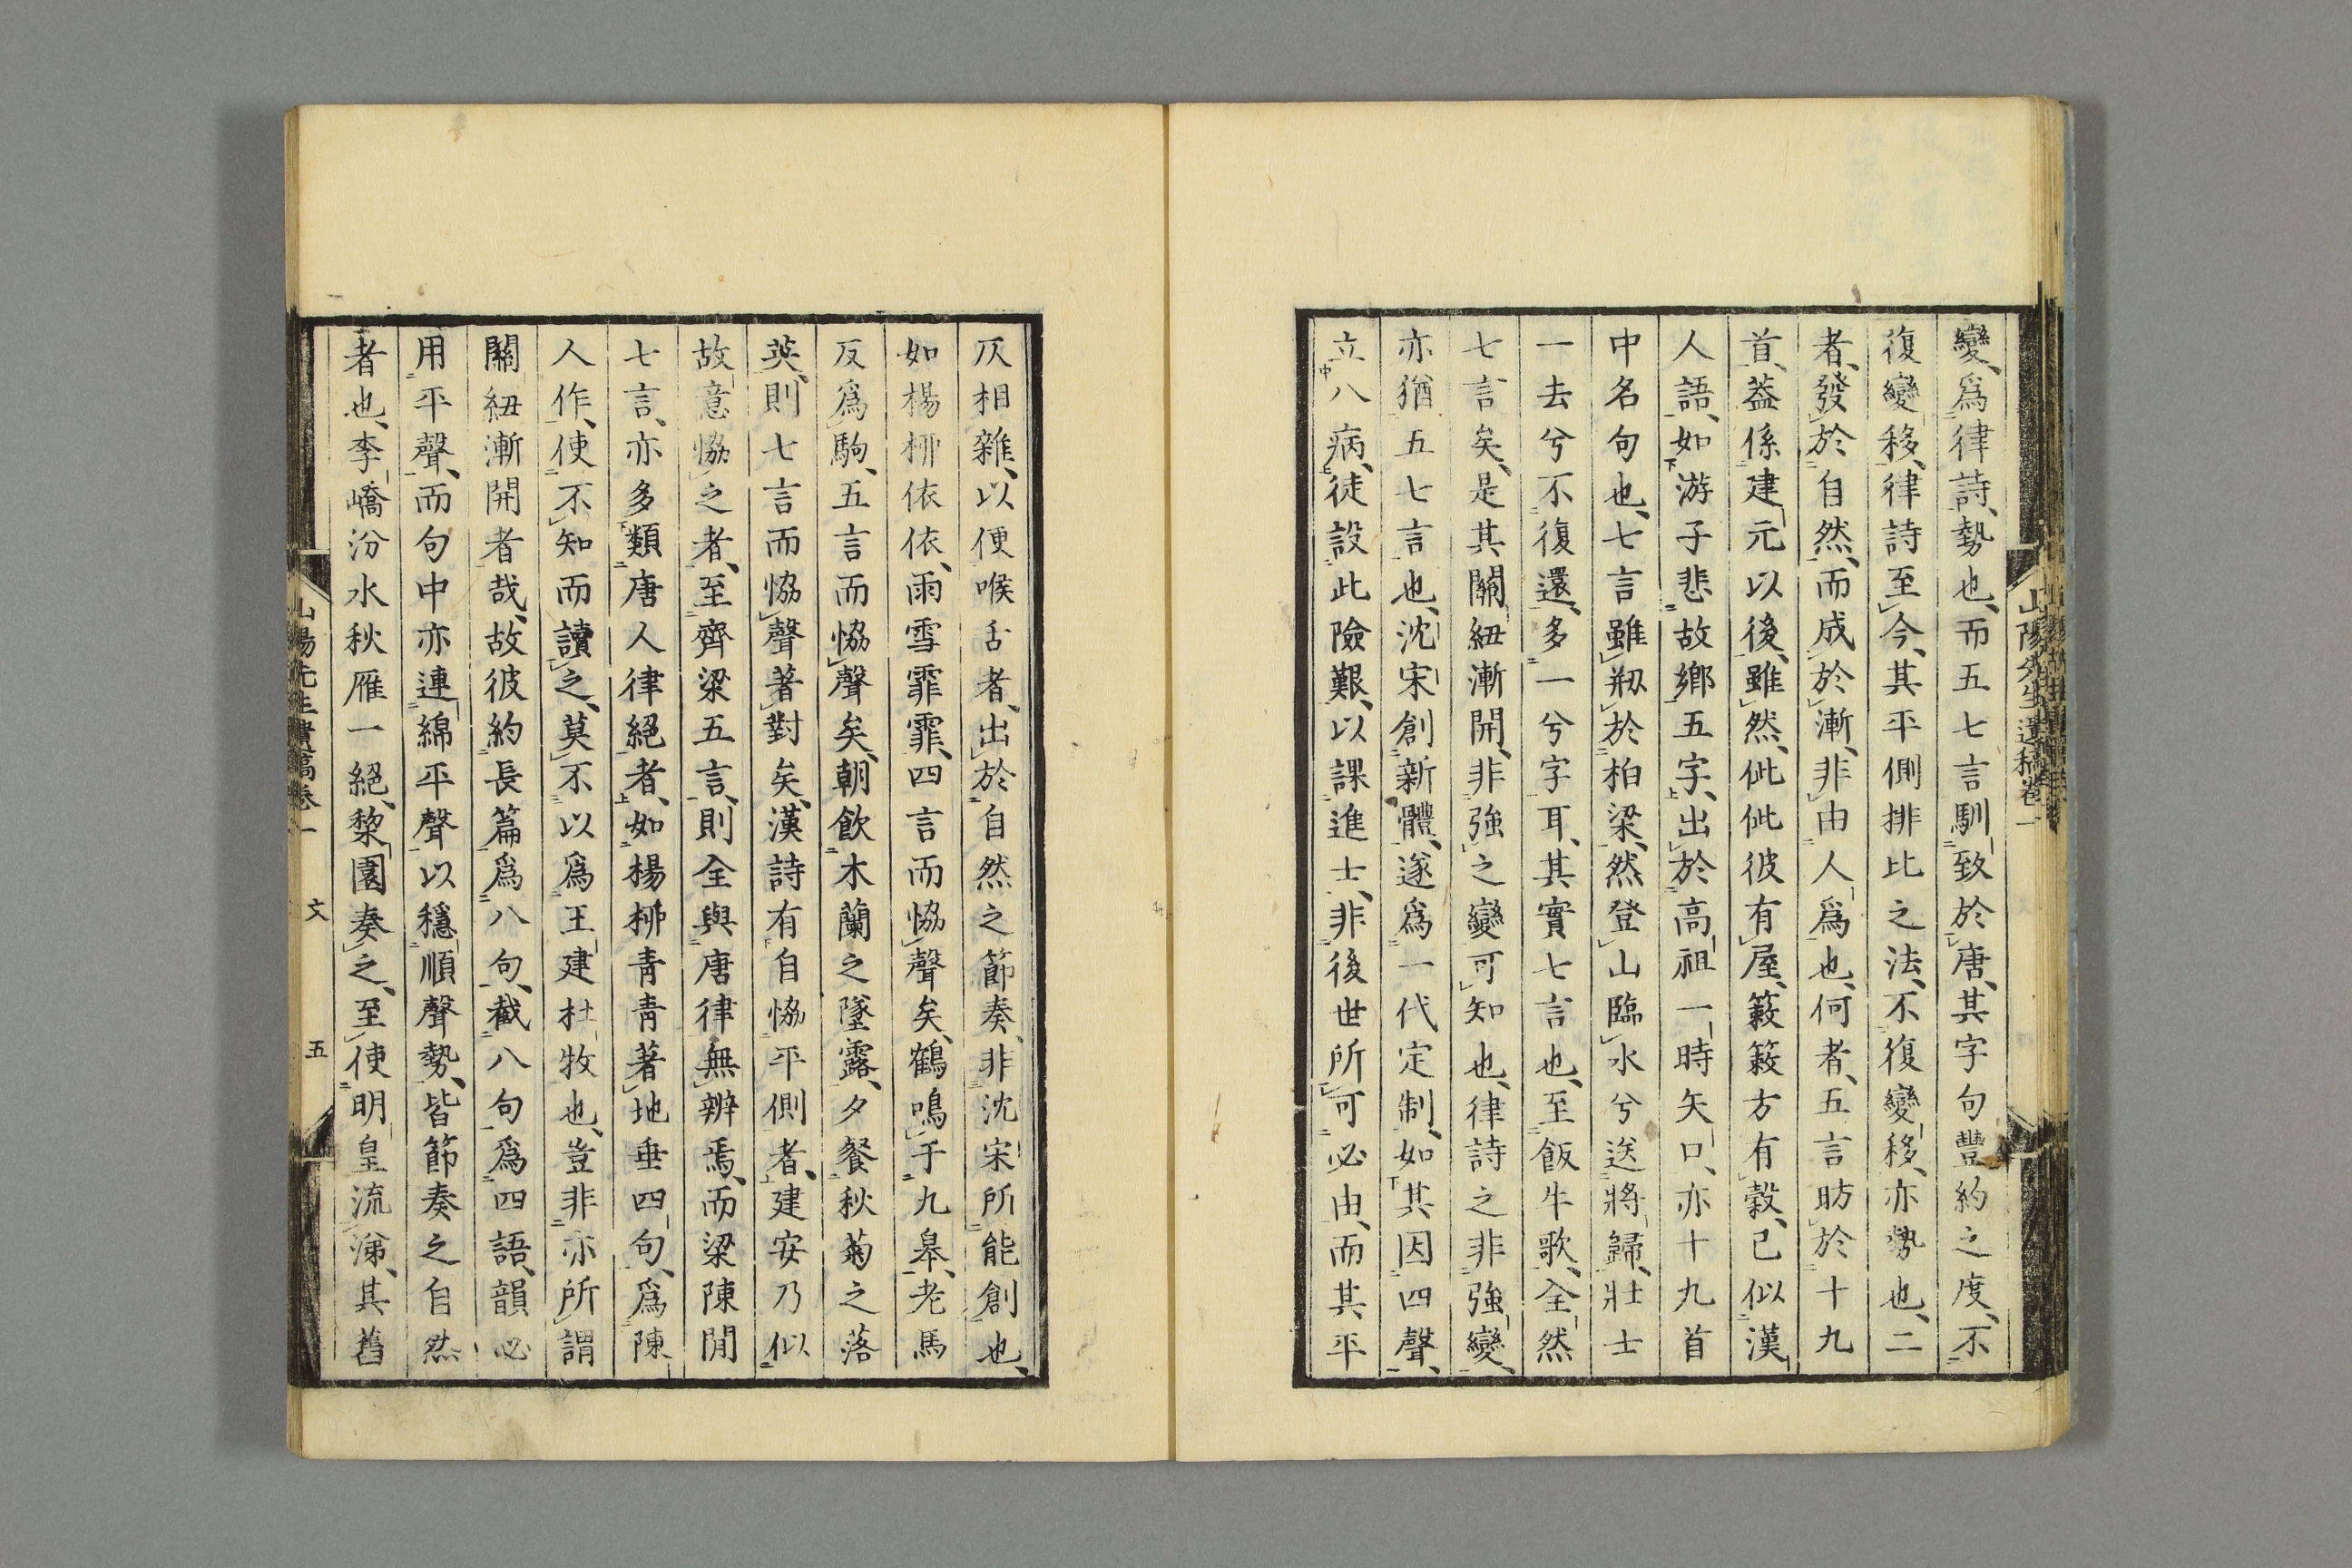 變、爲律詩、勢也、而五七言馴致於唐、其字句豐約之度、不
復變移、律詩至今、其平側排比之法、不復變移、亦勢也、二
者、發於自然、而成於漸、非由人爲也、何者、五言昉於十九
首、葢係建元以後、雖然、佌佌彼有屋、蔌蔌方有穀、已似漢
人語、如游子悲故鄉五字、出於高祖一時矢口、亦十九首
中名句也、七言雖剏於柏梁、然登山臨水兮送將歸、壯士
一去兮不復還、多一兮字耳、其實七言也、至飯牛歌、全然
七言矣、是其關紐漸開、非強之變可知也、律詩之非強變、
亦猶五七言也、沈宋創新體、遂爲一代定制、如其因四聲、
立八病、徒設此險艱、以課進士、非後世所可必由、而其平
仄相雜、以便喉舌者、出於自然之節奏、非沈宋所能創也、
如楊柳依依、雨雪霏霏、四言而恊聲矣、鶴鳴于九皋、老馬
反爲駒、五言而恊聲矣、朝飲木蘭之墜露、夕餐秋菊之落
英、則七言而恊聲著對矣、漢詩有自恊平側者、建安乃似
故意恊之者、至齊梁五言、則全與唐律無辨焉、而梁陳間
七言、亦多類唐人律絕者、如楊柳青青著地垂四句、爲陳
人作、使不知而讀之、莫不以爲王建杜牧也、豈非亦所謂
關紐漸開者哉、故彼約長篇爲八句、截八句爲四語、韻必
用平聲、而句中亦連綿平聲、以穩順聲勢、皆節奏之自然
者也、李嶠汾水秋雁一絕、棃園奏之、至使明皇流涕、其舊
山陽先生遺稿卷一
山陽先生遺稿卷一 文 五